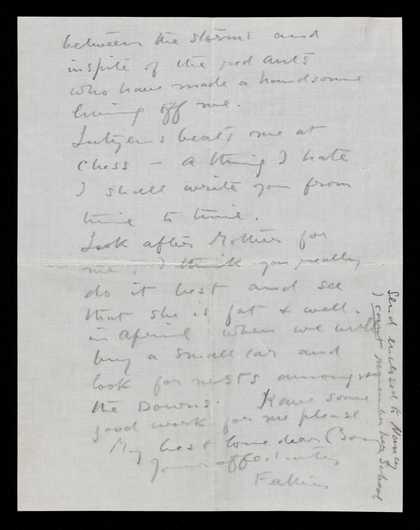 between the storms and
inspite of the red ants
who have made a handsome
living off me.
Lutyens beats me at
chess – a thing I hate
I shall write you from
time to time.
Look after Mother for
me, I think you really
do it best and see
that she is fat & well.
in April when we will
buy a small car and
look for nests amongst
the Downs. Have some
good work for me please
My best love dear Boy
Your affectionate
Father
Send enclosed to Nancy
I cannot remember her School